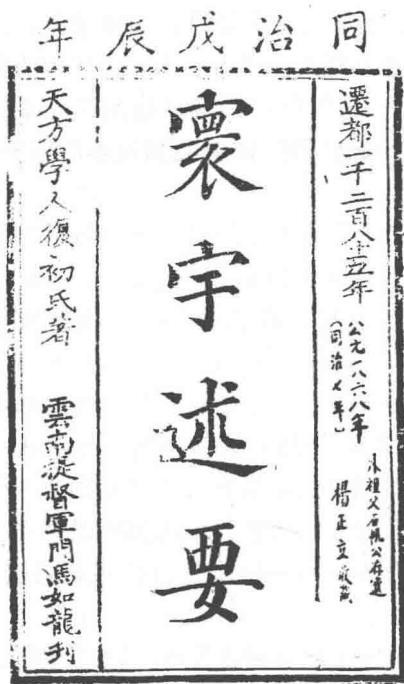 同治戊辰年
遷都一千二百八十五年
公元一八六八年
(同治七年)
外祖父石帆公存遺
楊正立藏
寰宇述要
天方學人復初氏著 雲南提督軍門馬如龍刊